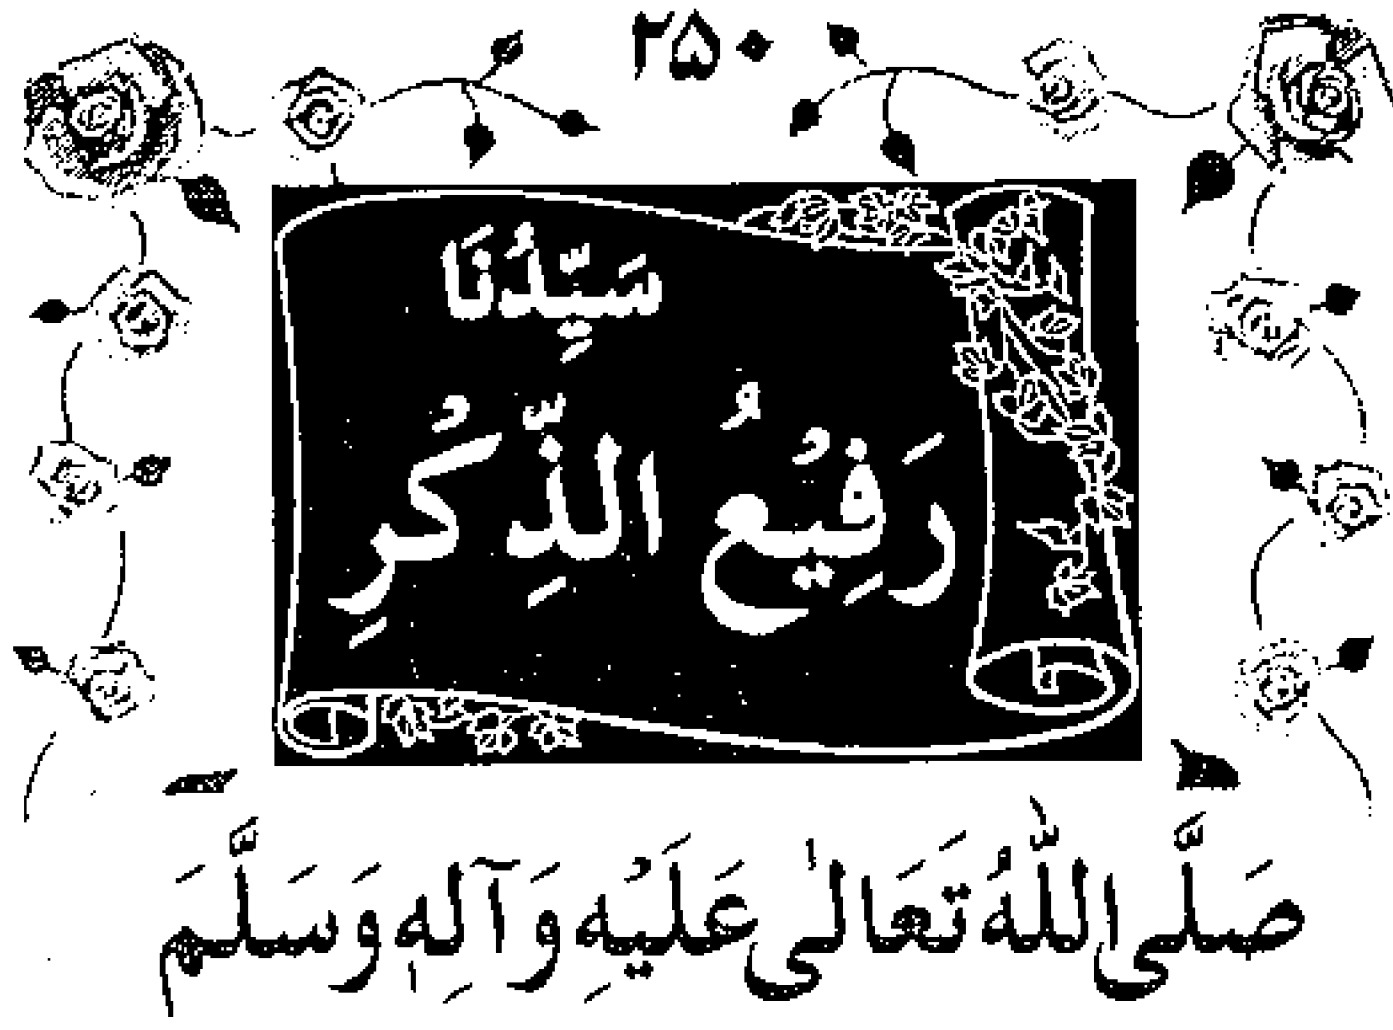 ۲۵۰
سَیِّدُنَا
رَفِیْعُ الذِّکْرِ
صَلَّی اللّٰهُ تَعَالٰی عَلَیْهِ وَآلِهٖ وَسَلَّمَ